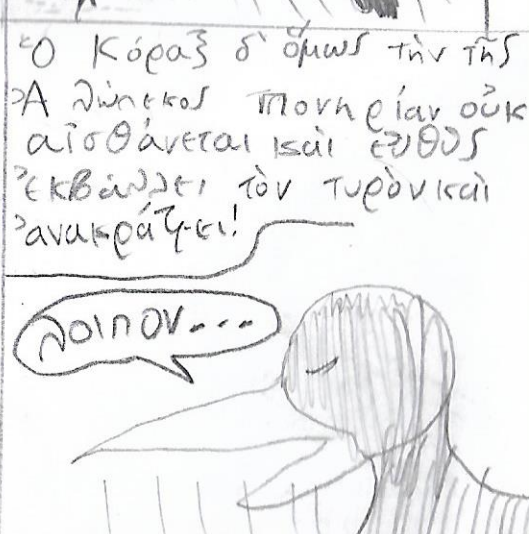 Ὁ Κόραξ δ' ὅμως τὴν τῆς
Ἀλώπεκος πονηρίαν οὐκ
αἰσθάνεται καὶ εὐθὺς
ἐκβάλλει τὸν τυρὸν καὶ
ἀνακράζει!
λοιπον...